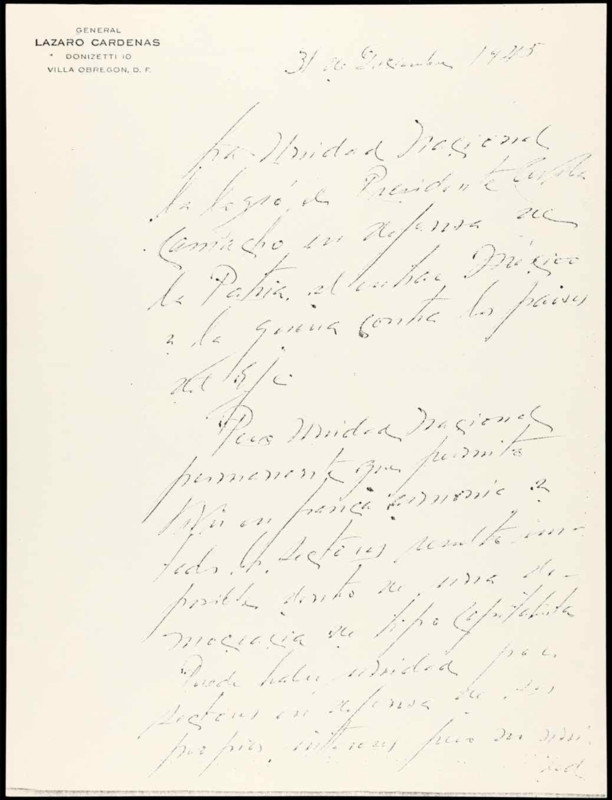 GENERAL
LAZARO CARDENAS
DONIZETTI 10
VILLA OBREGON, D. F.
31 de Diciembre 1945
La Unidad Nacional
la logró el Presidente Avila
Camacho en defensa de
la Patria, al entrar México
a la guerra contra los paises
del Eje.
Pero Unidad Nacional
permanente que permita
vivir en franca armonia a
todos los sectores resulta im-
posible dentro de una de-
mocracia de tipo capitalista
Puede haber unidad por
sectores en defensa de sus
propios intereses pero no uni
dad